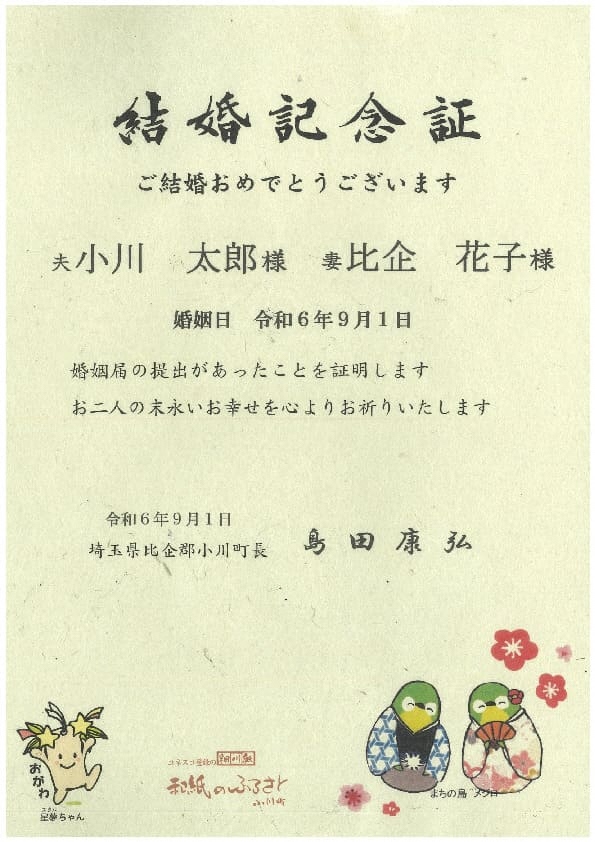 結婚記念証
ご結婚おめでとうございます
夫小川 太郎様 妻比企 花子様
婚姻日 令和6年9月1日
婚姻届の提出があったことを証明します
お二人の末永いお幸せを心よりお祈りいたします
令和6年9月1日
埼玉県比企郡小川町長 島田康弘
おがわ
星夢ちゃん
ユネスコ登録の細川紙
和紙のふるさと
小川町
まちの鳥 メジロ